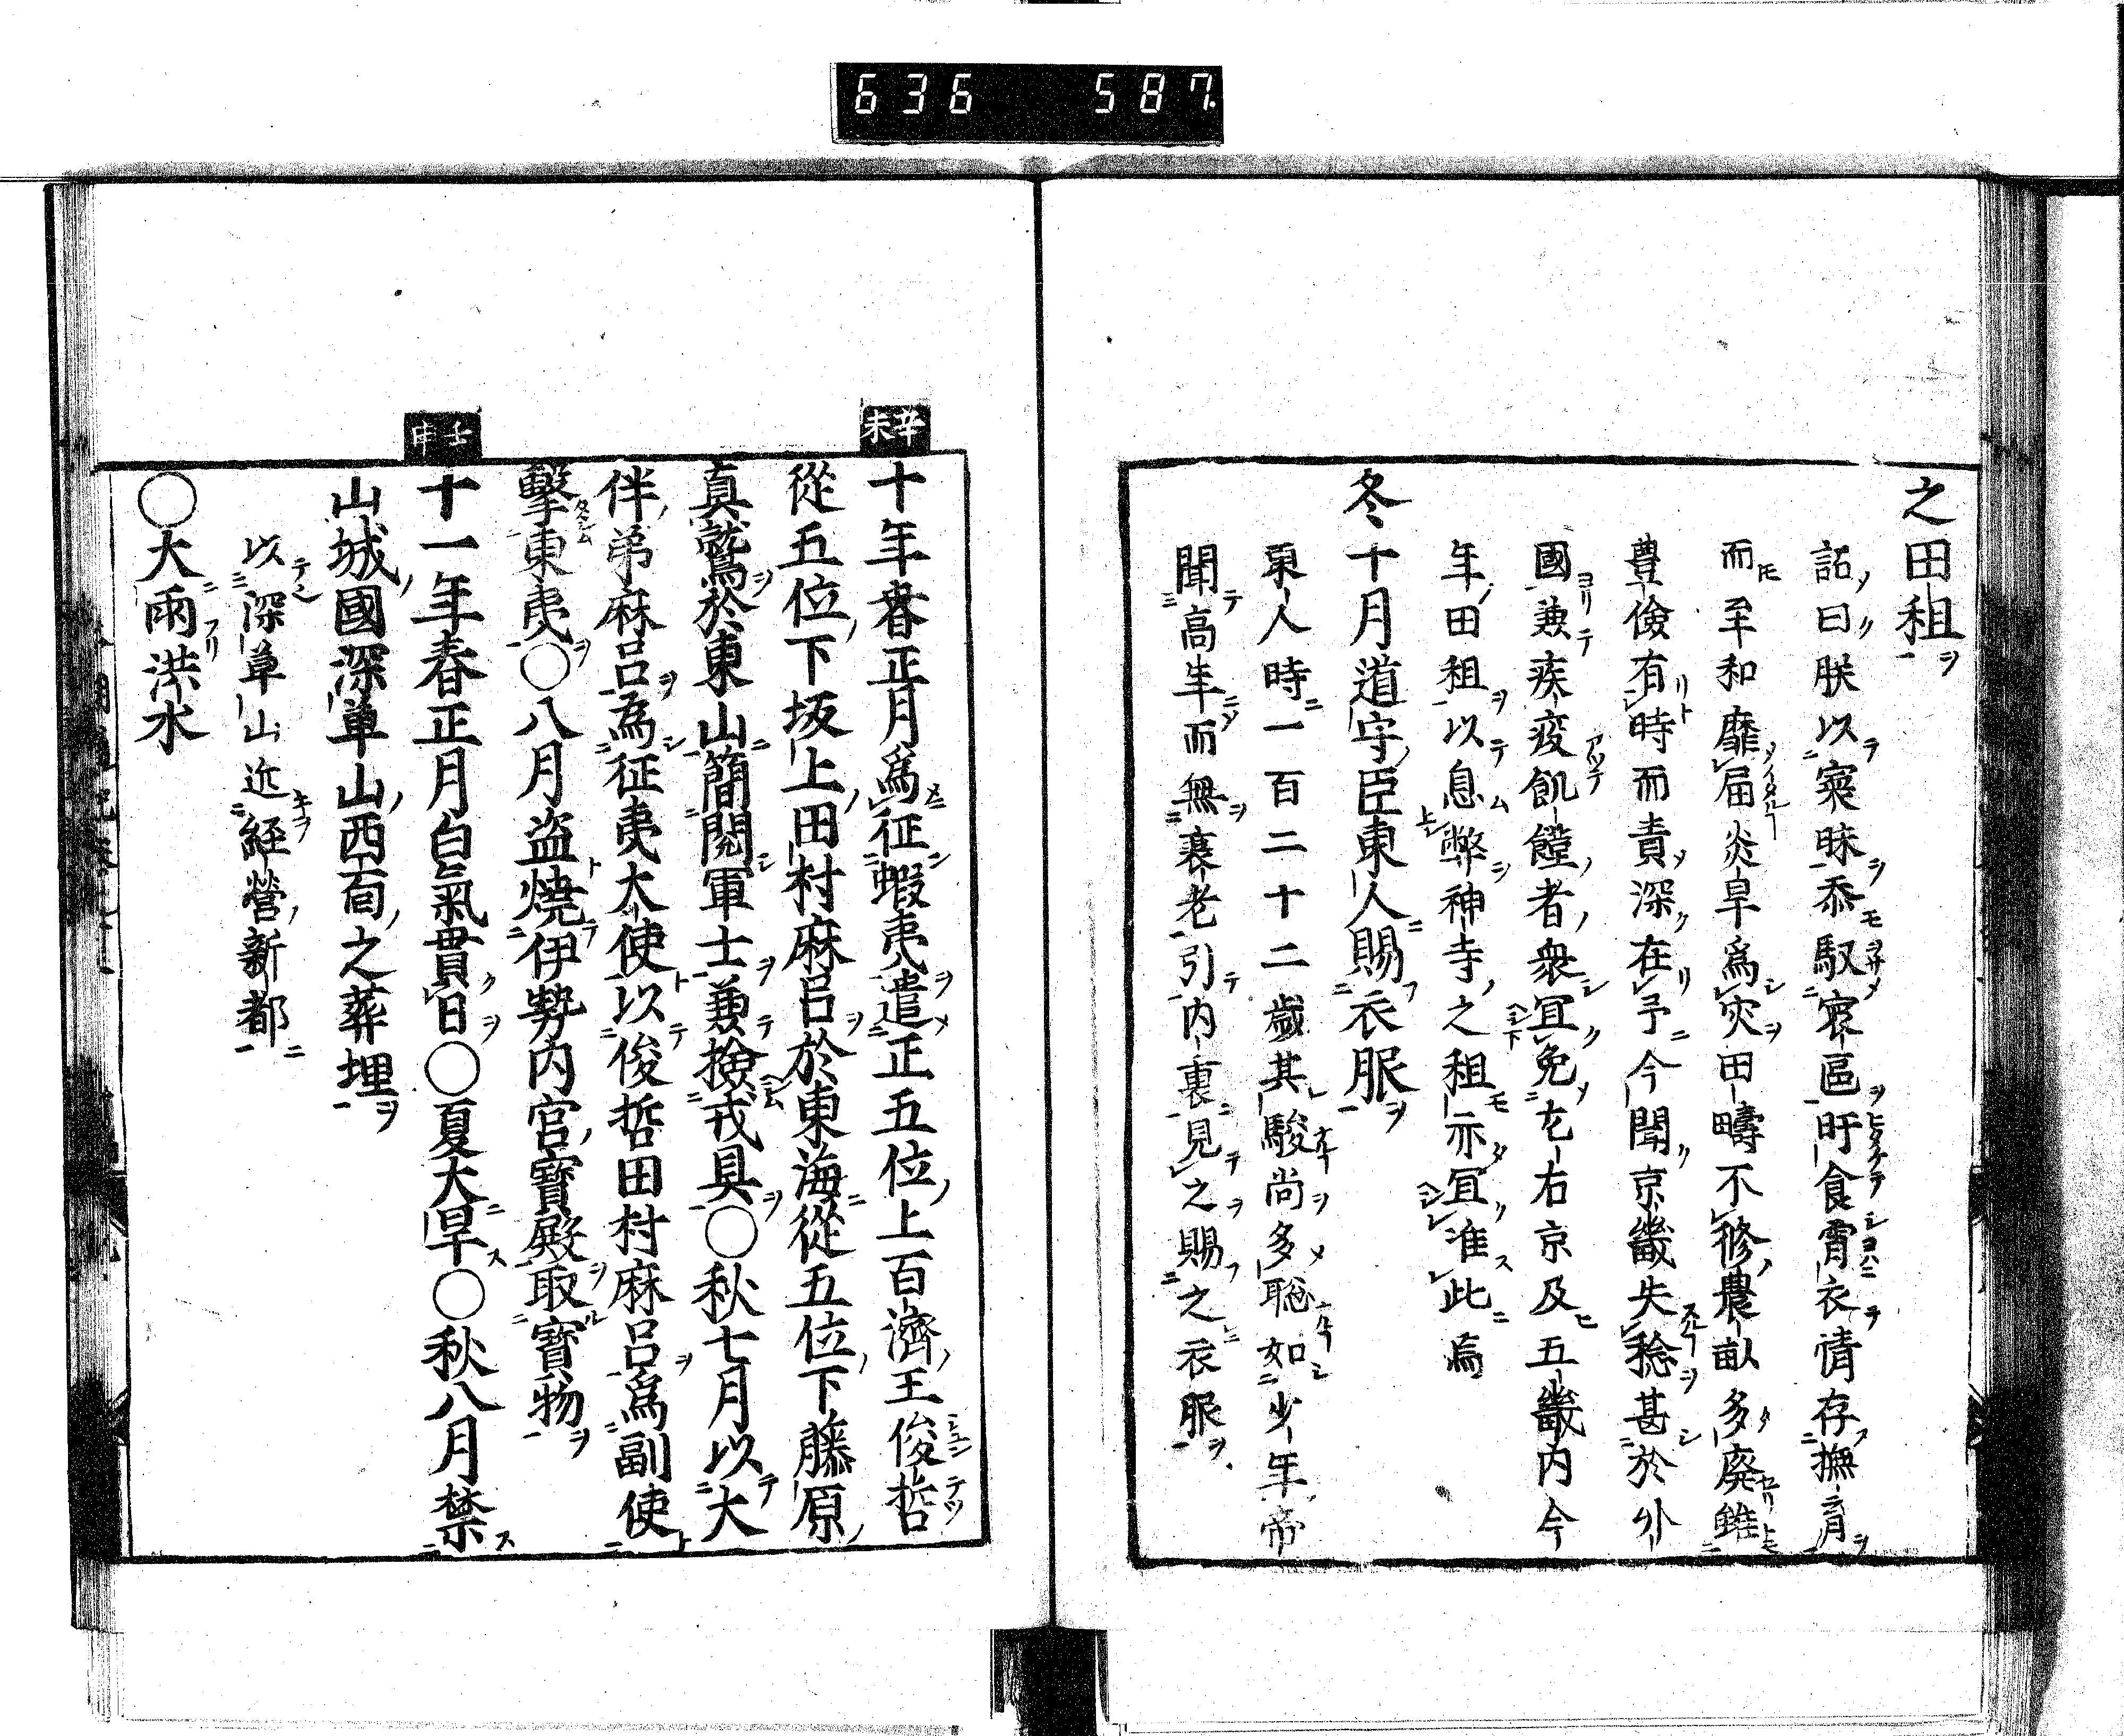 636 587
之田租
詔曰朕以寡昧忝馭寰區旰食霄衣情存撫育
而至和靡届炎旱為灾田疇不修農畝多廃雖
豊儉有時而責深在予今聞京畿失稔甚於外
國兼疾疫飢饉者衆冝免左右京及五畿内今
年田租以息弊神寺之租亦冝准此焉
冬十月道守臣東人賜衣服
東人時一百二十二歳其駿尚多聡如少年帝
聞高年而無衰老引内裏見之賜之衣服
辛未
十年春正月為征蝦夷遣正五位上百濟王俊哲
從五位下坂上田村麻呂於東海從五位下藤原
真鷲於東山簡閲軍士兼撿戎具〇秋七月以大
伴弟麻呂為征夷大使以俊哲田村麻呂為副使
擊東夷〇八月盗焼伊勢内宮寳殿取寳物
壬申
十一年春正月白氣貫日〇夏大旱〇秋八月禁
山城國深草山西面之葬埋
以深草山近経營新都
〇大雨洪水